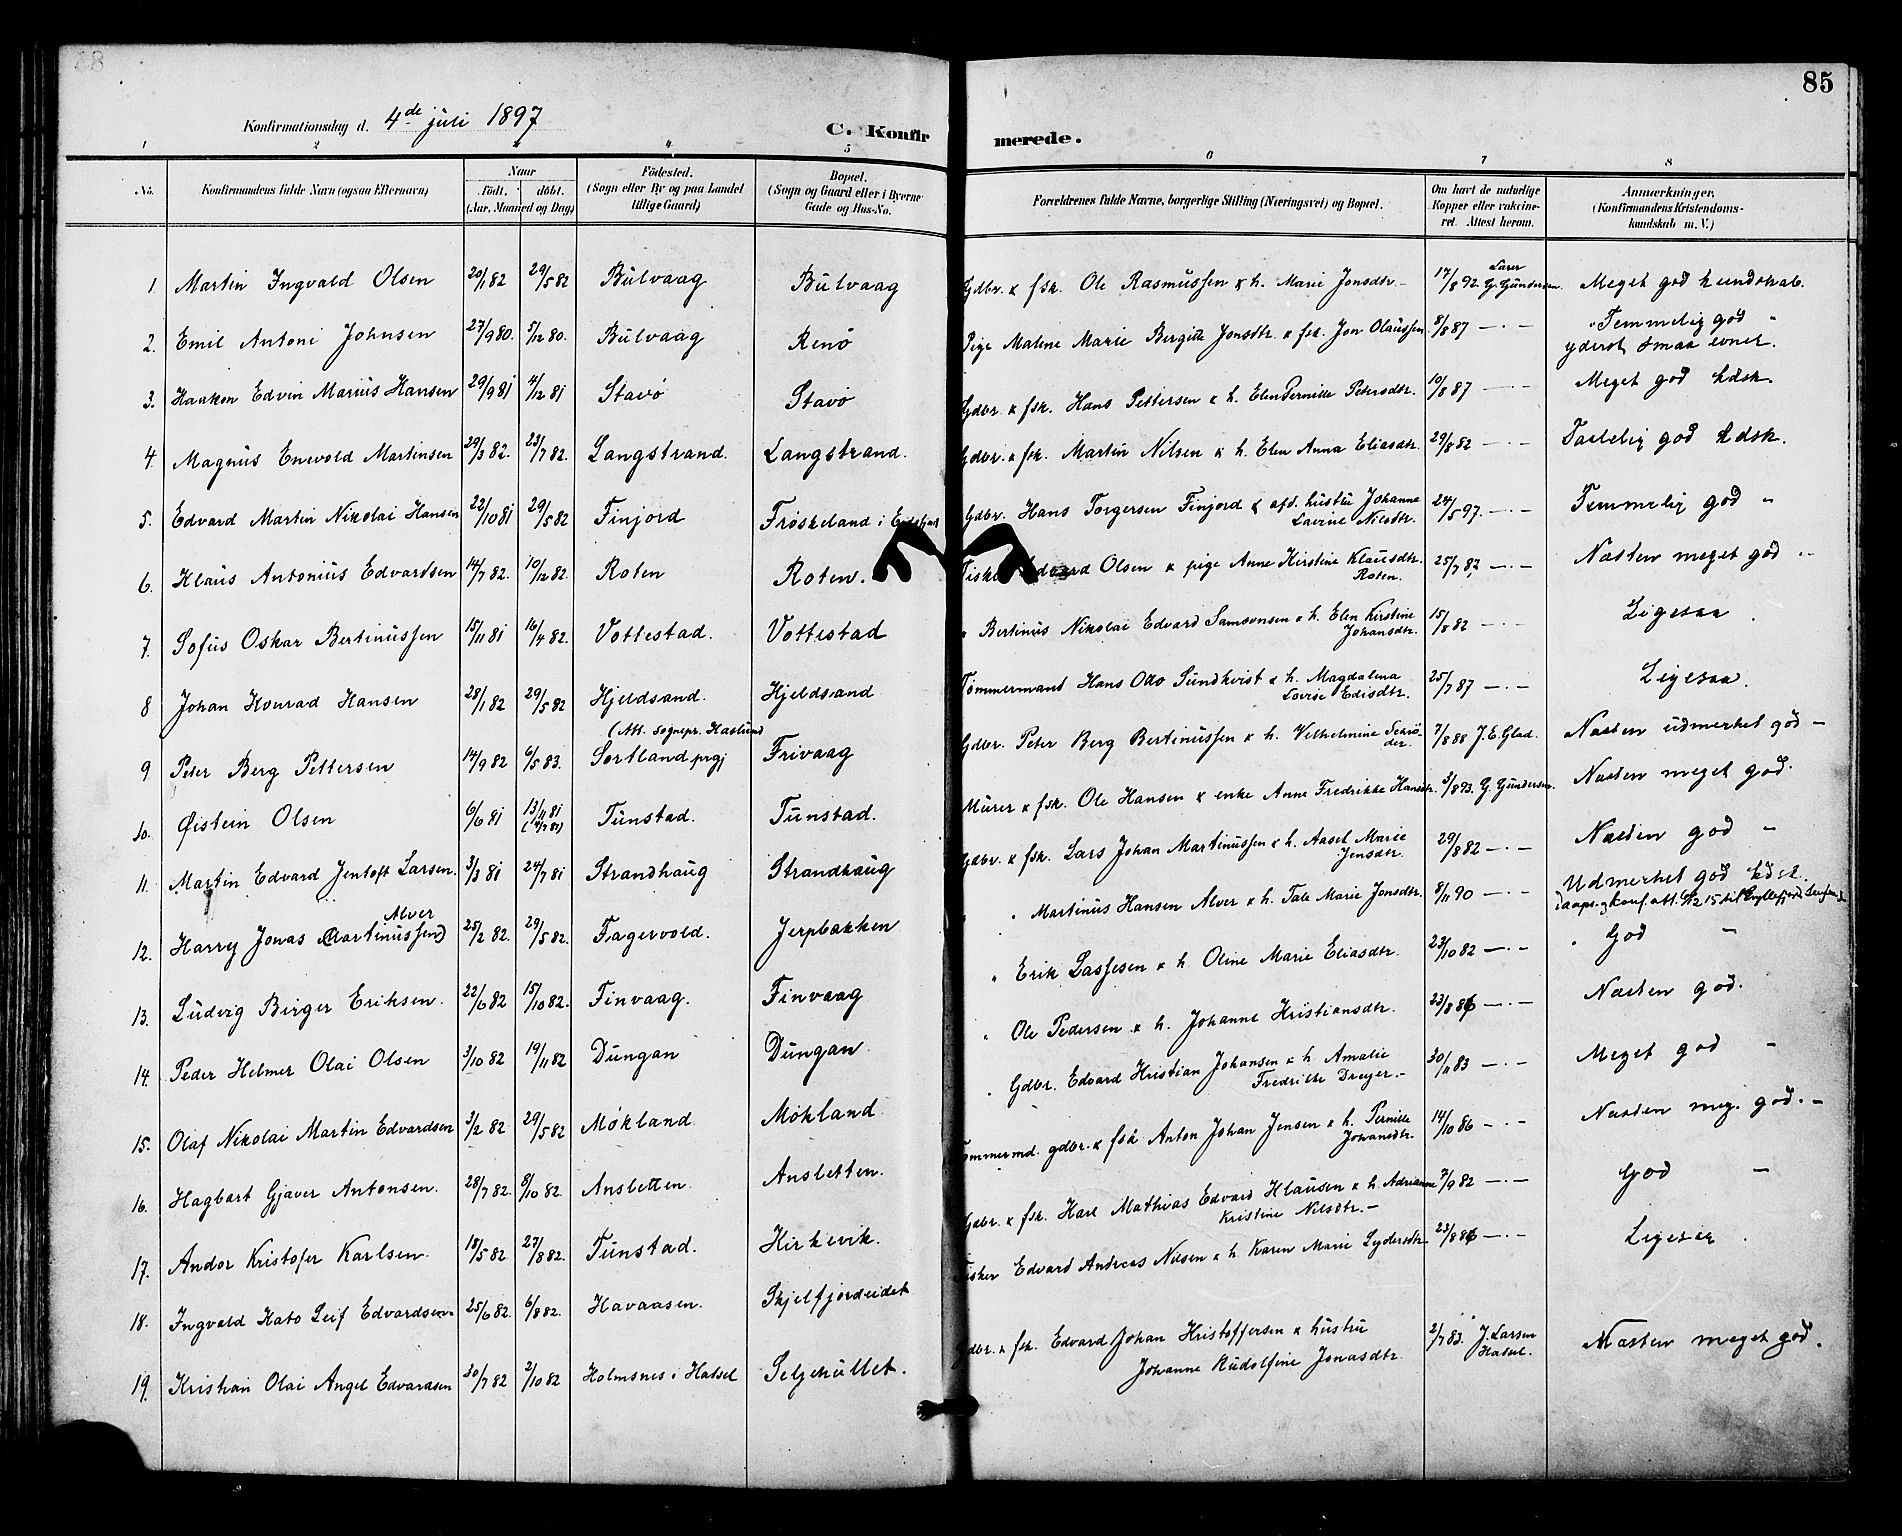 85
Konfirmationsdag d. 4de juli 1897
C. Konfirmerede.
1 2 3 4 5 6 7 8
No. Konfirmandens fulde Navn (ogsaa Efternavn) Naar født. døbt. (Aar, Maaned og Dag) Fødested. (Sogn eller By og paa Landet tillige Gaard.) Bopæl. (Sogn og Gaard eller i Byerne Gade og Hus-No. Forældrenes fulde Navne, borgerlige Stilling (Næringsvei) og Bopæl. Om havt de naturlige Kopper eller vakcineret. Attest herom. Anmærkninger. (Konfirmandens Kristendomskundskab m. V.)
1. Martin Ingvald Olsen 20/1 82 29/5 82 Bulvaag Bulvaag Gdbr. & fsk. Ole Rasmussen & h. Marie Jonsdtr. 17/8 92 Lærer G. Gundersen Meget god kundskab.
2. Emil Antoni Johnsen 27/9 80. 5/12 80. Bulvaag Renø Pige Malene Marie Bergitte Jonsdtr. & fsk. Jon Olaussen 8/8 87 —.— Temmelig god " yderst smaa evner.
3. Haakon Edvin Marius Hansen 29/9 81 4/12 81 Stavø Stavø Gdbr. & fsk. Hans Pettersen & h. Elen Pernille Petersdtr. 10/8 87 —.— Meget god kdsk.
4. Magnus Enevold Martinsen 29/3 82. 23/7 82. Langstrand. Langstrand. Gdbr. & fsk. Martin Nilsen & h. Elen Anna Eliasdtr. 29/8 82 —.— Taalelig god kdsk.
5. Edvard Martin Nikolai Hansen 22/10 81 29/5 82 Finjord Frøskeland i Gdbr. Hans Torgersen Finjord & afd. hustru Johanne Lavine Nilsdtr. 24/5 97. —.— Temmelig god "
6. Klaus Antonius Edvardsen 14/7 82. 10/12 82. Roten Roten. Fisker Edvard Olsen & pige Anne Kirstine Klausdtr. Roten. 25/7 87 —.— Næsten meget god "
7. Sofus Oskar Bertinussen 15/11 81 16/4 82. Vottestad. Vottestad " Bertinus Nikolai Edvard Samsonsen & h. Elen Kirstine Johansdtr. 15/8 82 —.— Ligesaa
8 Johan Konrad Hansen 28/1 82 29/5 82 Hjeldsand. Hjeldsand Tømmermand Hans Otto Sundkvist & h. Magdalena Lovise Edisdtr. 25/7 87 —.— Ligesaa.
9 Peter Berg Pettersen 14/9 82 6/5 83. (Att. sognepr. Haslund Sortland prgj Frivaag Gdbr. Peter Berg Bertinussen & h. Vilhelmine Schrøder. 7/8 88 J. E. Glad. Næsten udmerket god —
10. Øistein Olsen 6/6 81 13/11 81 Tunstad. Tunstad. Murer & fsk. Ole Hansen & enke Anne Fredrikke Hansdtr. 3/8 93. G. Gundersen. Næsten meget god.
11. Martin Edvard Jentoft Larsen. 3/3 81 24/7 81 Strandhaug Strandhaug Gdbr. & fsk. Lars Johan Martinussen & h. Aasel Marie Jensdtr. 29/8 82 —.— Næsten god "
12. Harry Jonas (Martinussen) Alver 25/2 82. 29/5 82. Fagervold. Jerpbakken " " Martinus Hansen Alver & h. Tale Marie Jonsdtr. 8/11 90 —.— Udmerket god kdsk.
13. Ludvig Birger Eriksen. 22/6 82 15/10 82. Finvaag. Finvaag " Erik Lassesen & h. Oline Marie Eliasdtr. 23/10 82 —.— God —
14. Peder Helmer Olai Olsen 3/10 82 19/11 82 Dungan Dungan " Ole Pedersen & h. Johanne Kristiansdtr. 23/8 86 —.— Næsten god.
15. Olaf Nikolai Martin Edvardsen 3/2 82 29/5 82 Møkland Møkland " Gdbr. Edvard Kristian Johansen & h. Amalie Fredrikke Dreyer. — 30/11 83 —.— Meget god "
16. Hagbart Gjæver Antonsen. 28/7 82. 8/10 82. Ansletten Ansletten. Tømmermd. gdbr. & fsk Anton Johan Jensen & h. Pernille Johansdtr. 14/10 86 —.— Næsten meg. god. —
17. Andor Kristofer Karlsen. 18/5 82 27/8 82. Tunstad. Kirkevik. Gdbr. & fsk. Karl Mathias Edvard Klausen & h. Adrianne Kristine Nilsdtr. — 7/9 82 —.— God —
18. Ingvald Kato Leif Edvardsen. 25/6 82. 6/8 82. Havaasen. Skjelfjordeidet Fisker Edvard Andreas Nilsen & h Karen Marie Lydersdtr. 23/8 86 —.— Ligesaa.
19. Kristian Olai Angel Edvardsen 30/7 82 2/10 82 Holmsnes i Hatsel Seljehullet. Gdbr. & fsk. Edvard Johan Kristoffersen & hustru Johanne Rudolfine Jonasdtr. 2/7 83. J. Larsen Hatsel. Næsten meget god.